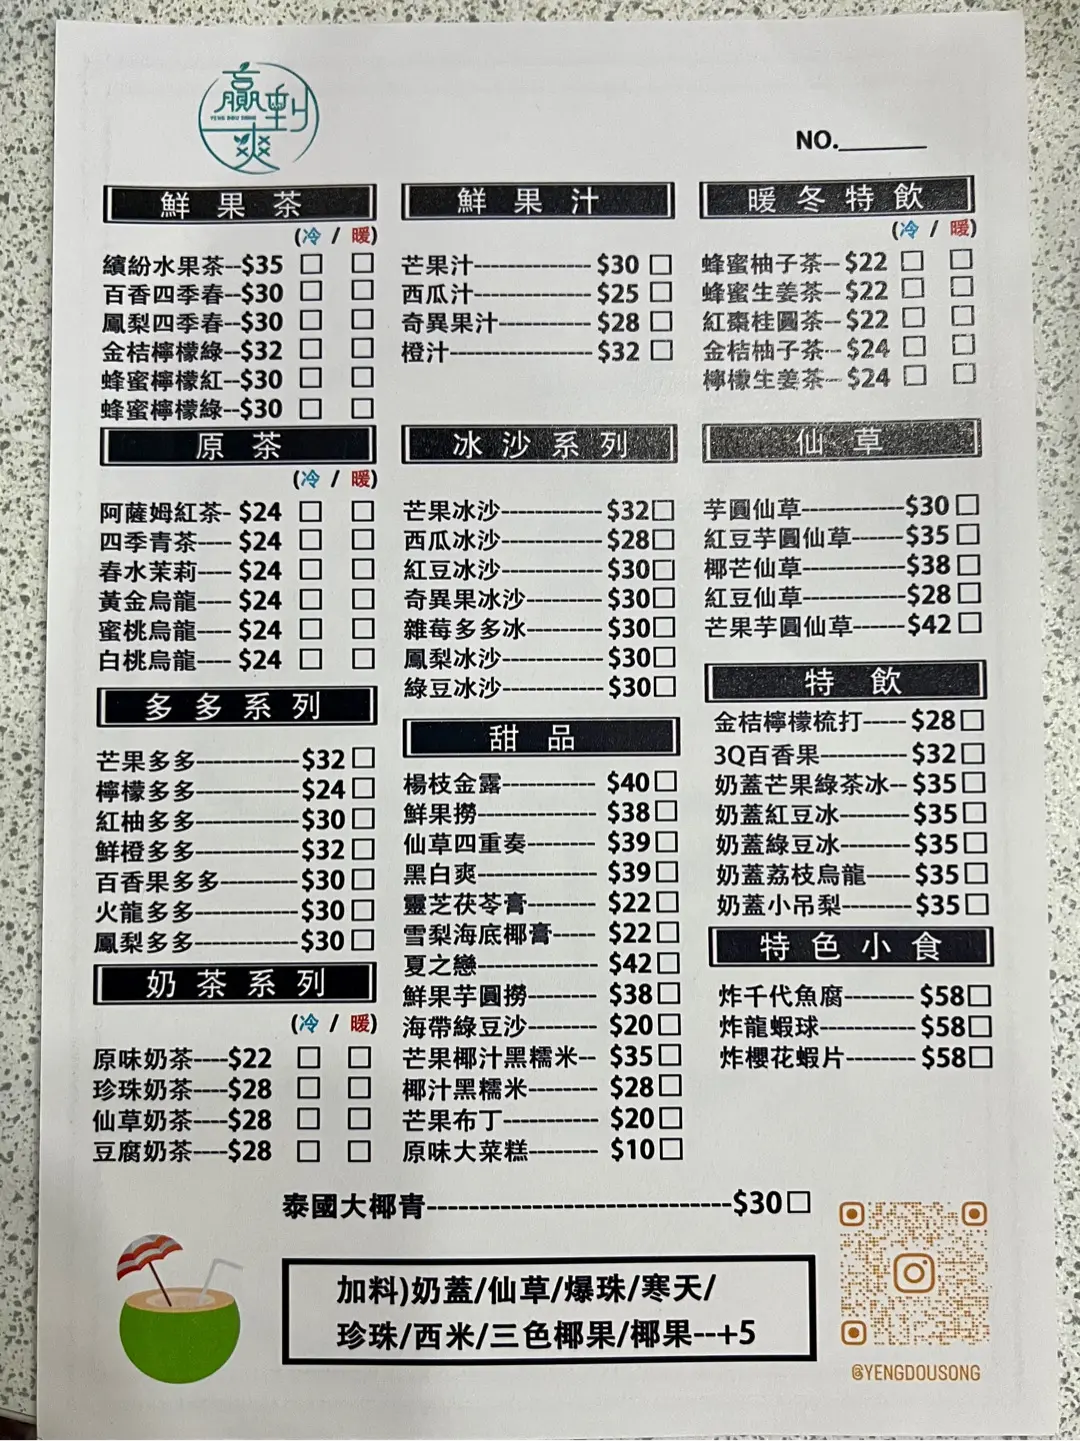 贏到爽
YENG DOU SONG
NO.______
鮮果茶
(冷 / 暖)
繽紛水果茶--$35
百香四季春--$30
鳳梨四季春--$30
金桔檸檬綠--$32
蜂蜜檸檬紅--$30
蜂蜜檸檬綠--$30
原茶
(冷 / 暖)
阿薩姆紅茶- $24
四季青茶---- $24
春水茉莉---- $24
黃金烏龍---- $24
蜜桃烏龍---- $24
白桃烏龍---- $24
多多系列
芒果多多------------$32
檸檬多多------------$24
紅柚多多------------$30
鮮橙多多------------$32
百香果多多---------$30
火龍多多------------$30
鳳梨多多------------$30
奶茶系列
(冷 / 暖)
原味奶茶----$22
珍珠奶茶----$28
仙草奶茶----$28
豆腐奶茶----$28
鮮果汁
芒果汁-------------- $30
西瓜汁-------------- $25
奇異果汁----------- $28
橙汁----------------- $32
冰沙系列
芒果冰沙------------$32
西瓜冰沙------------$28
紅豆冰沙------------$30
奇異果冰沙---------$30
雜莓多多冰---------$30
鳳梨冰沙------------$30
綠豆冰沙------------$30
甜品
楊枝金露----------- $40
鮮果撈-------------- $38
仙草四重奏-------- $39
黑白爽-------------- $39
靈芝茯苓膏-------- $22
雪梨海底椰膏----- $22
夏之戀-------------- $42
鮮果芋圓撈-------- $38
海帶綠豆沙-------- $20
芒果椰汁黑糯米-- $35
椰汁黑糯米-------- $28
芒果布丁----------- $20
原味大菜糕-------- $10
暖冬特飲
(冷 / 暖)
蜂蜜柚子茶-- $22
蜂蜜生姜茶-- $22
紅棗桂圓茶-- $22
金桔柚子茶-- $24
檸檬生姜茶-- $24
仙草
芋圓仙草------------$30
紅豆芋圓仙草------$35
椰芒仙草------------$38
紅豆仙草------------$28
芒果芋圓仙草------$42
特飲
金桔檸檬梳打----- $28
3Q百香果---------- $32
奶蓋芒果綠茶冰-- $35
奶蓋紅豆冰---------$35
奶蓋綠豆冰---------$35
奶蓋荔枝烏龍----- $35
奶蓋小吊梨-------- $35
特色小食
炸千代魚腐-------- $58
炸龍蝦球----------- $58
炸櫻花蝦片-------- $58
泰國大椰青-----------------------------$30
加料)奶蓋/仙草/爆珠/寒天/
珍珠/西米/三色椰果/椰果--+5
@YENGDOUSONG